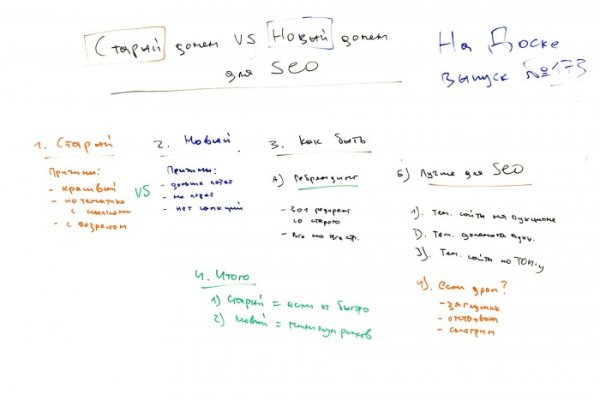 Старый домен VS Новый домен
для SEO
На Доске
выпуск №173
1. Старый
Причины:
- красивый
- по тематике
с ссылками
- с возрастом
VS
2. Новый
Причины:
- дольше
- не
- нет санкций
3. Как быть
А) Ребрендинг
- 301 редирект
со старого
- Все на все стр.
Б) Лучше для SEO
1). Тем. сайты на аукционе
2). Тем. домены
3). Тем. сайты по ТОП-у
4). если дроп?
- загрузка
- отстаиваем
- смотрим
4. Итого
1) Старый = если ок быстро
2) Новый = минимум рисков